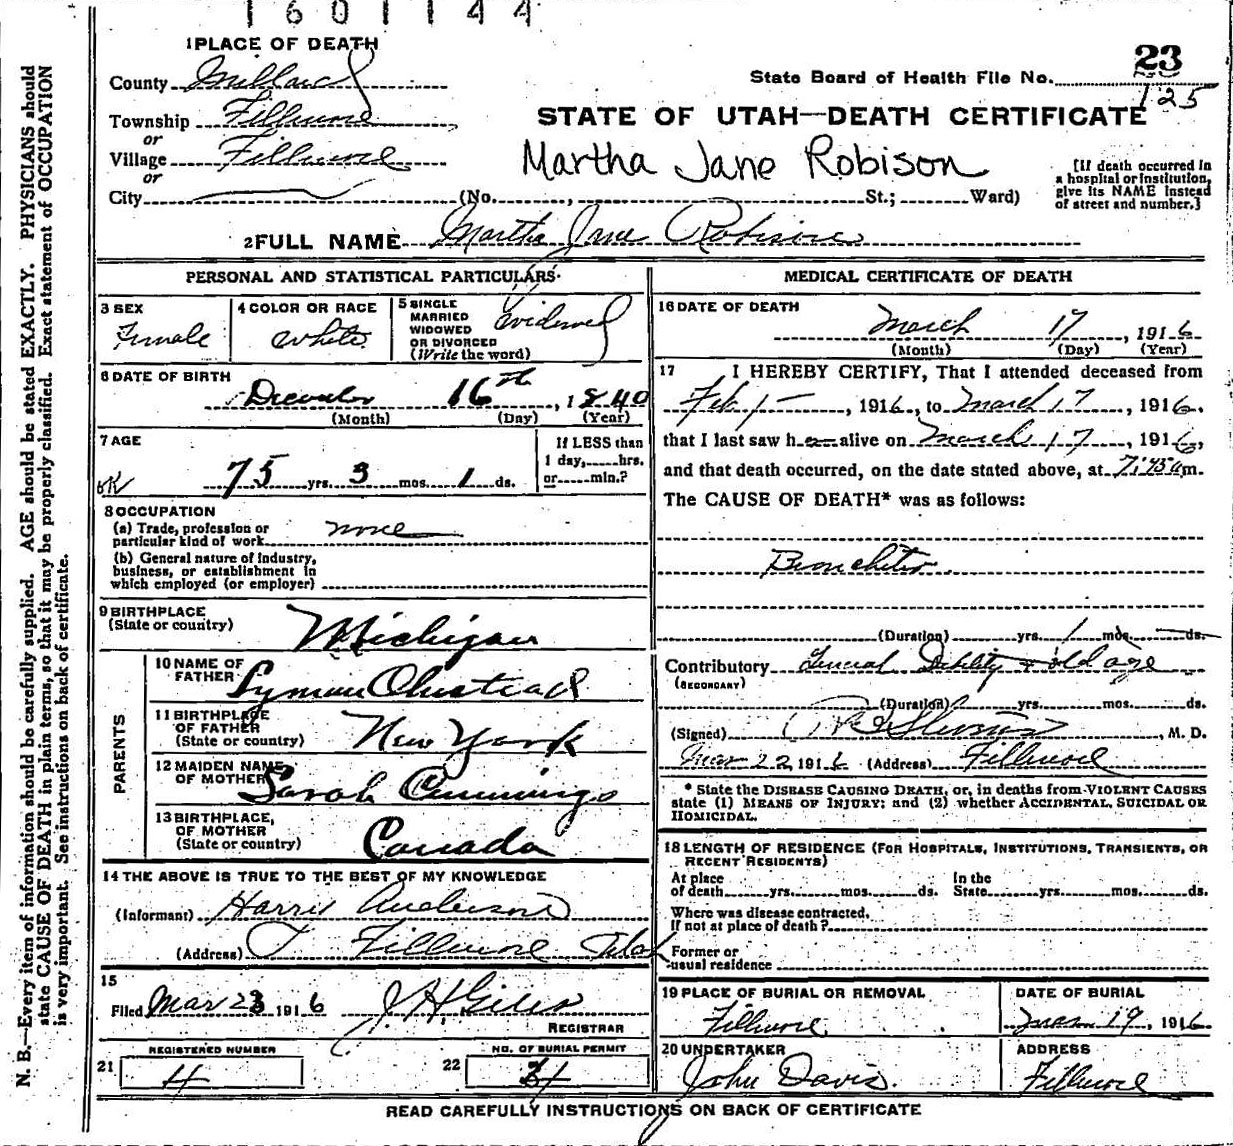 1601144
1 PLACE OF DEATH
County Millard
Township Fillmore
or
Village Fillmore
or
City
23
State Board of Health File No. 125
STATE OF UTAH—DEATH CERTIFICATE
Martha Jane Robison
(No. , St.; Ward)
[If death occurred in
a hospital or institution,
give its NAME instead
of street and number.]
2 FULL NAME Martha Jane Robison
PERSONAL AND STATISTICAL PARTICULARS
3 SEX
Female
4 COLOR OR RACE
White
5 SINGLE
MARRIED
WIDOWED
OR DIVORCED
(Write the word)
Widowed
6 DATE OF BIRTH
December 16th, 1840
(Month) (Day) (Year)
7 AGE
OK 75 yrs. 3 mos. 1 ds.
If LESS than
1 day, hrs.
or min.?
8 OCCUPATION
(a) Trade, profession or
particular kind of work none
(b) General nature of industry,
business, or establishment in
which employed (or employer)
9 BIRTHPLACE
(State or country) Michigan
PARENTS
10 NAME OF
FATHER Lyman Olmstead
11 BIRTHPLACE
OF FATHER
(State or country) New York
12 MAIDEN NAME
OF MOTHER Sarah Cummings
13 BIRTHPLACE,
OF MOTHER
(State or country) Canada
14 THE ABOVE IS TRUE TO THE BEST OF MY KNOWLEDGE
(Informant) Harris Anderson
(Address) Fillmore Utah
15
Filed Mar 23 1916 J. H. Giles
REGISTRAR
21 REGISTERED NUMBER
4
22 NO. OF BURIAL PERMIT
MEDICAL CERTIFICATE OF DEATH
16 DATE OF DEATH
March 17, 1916
(Month) (Day) (Year)
17 I HEREBY CERTIFY, That I attended deceased from
Feb 1, 1916, to March 17, 1916.
that I last saw her alive on March 17, 1916,
and that death occurred, on the date stated above, at 7:45 am.
The CAUSE OF DEATH* was as follows:
Bronchitis
(Duration) yrs. 1 mos. ds.
Contributory General Debility & old age
(SECONDARY)
(Duration) yrs. mos. ds.
(Signed) , M. D.
Mar 22, 1916 (Address) Fillmore
* State the DISEASE CAUSING DEATH, or, in deaths from VIOLENT CAUSES
state (1) MEANS OF INJURY; and (2) whether ACCIDENTAL, SUICIDAL OR
HOMICIDAL.
18 LENGTH OF RESIDENCE (FOR HOSPITALS, INSTITUTIONS, TRANSIENTS, OR
RECENT RESIDENTS)
At place In the
of death yrs. mos. ds. State yrs. mos. ds.
Where was disease contracted,
If not at place of death?
Former or
usual residence
19 PLACE OF BURIAL OR REMOVAL
Fillmore
DATE OF BURIAL
Mar 19, 1916
20 UNDERTAKER
John Davis
ADDRESS
Fillmore
READ CAREFULLY INSTRUCTIONS ON BACK OF CERTIFICATE
N. B.—Every item of information should be carefully supplied. AGE should be stated EXACTLY. PHYSICIANS should
state CAUSE OF DEATH in plain terms, so that it may be properly classified. Exact statement of OCCUPATION
is very important. See instructions on back of certificate.